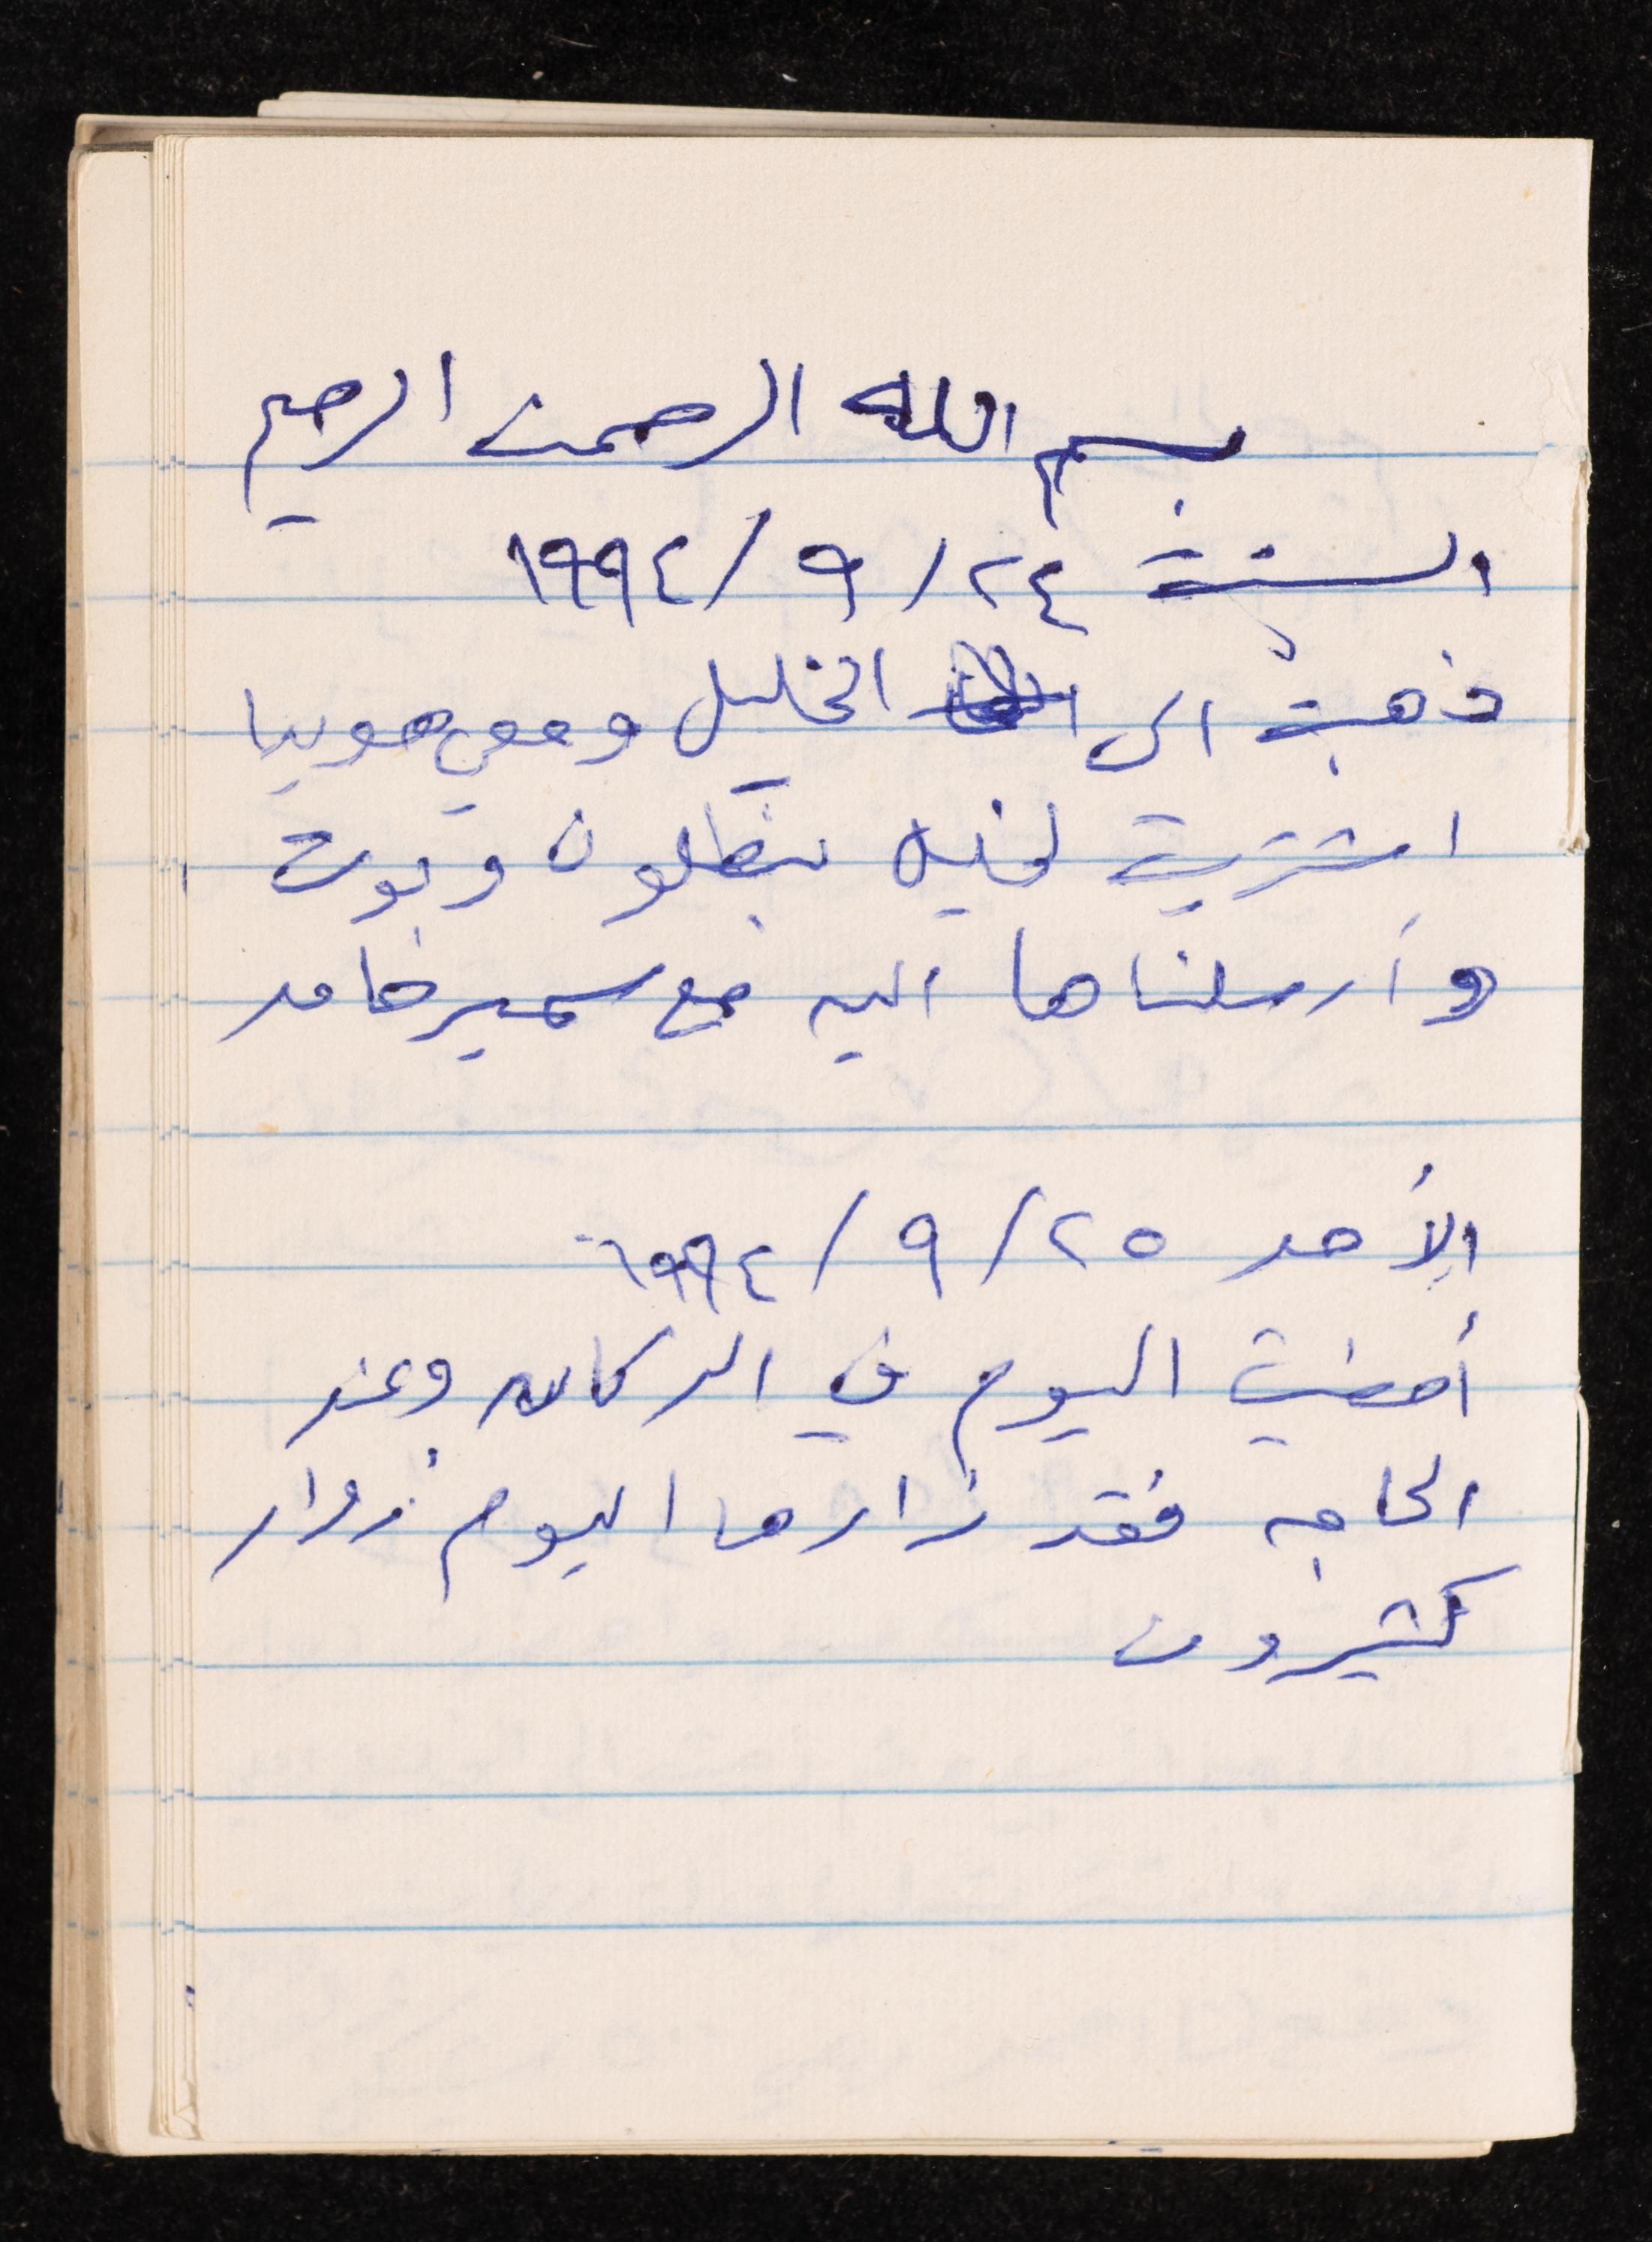 بسم الله الرحمن الرحيم
السبت ٢٤/٩/١٩٩٤
ذهبت الى الخليل ومعي هويدا
اشتريت لخليل بنطلون وبوت
وأرسلناها اليه مع سمير حامد
الأحد ٢٥/٩/١٩٩٤
أمضيت اليوم في الدكان وعند
الحاجه فقد زارها اليوم زوار
كثيرون